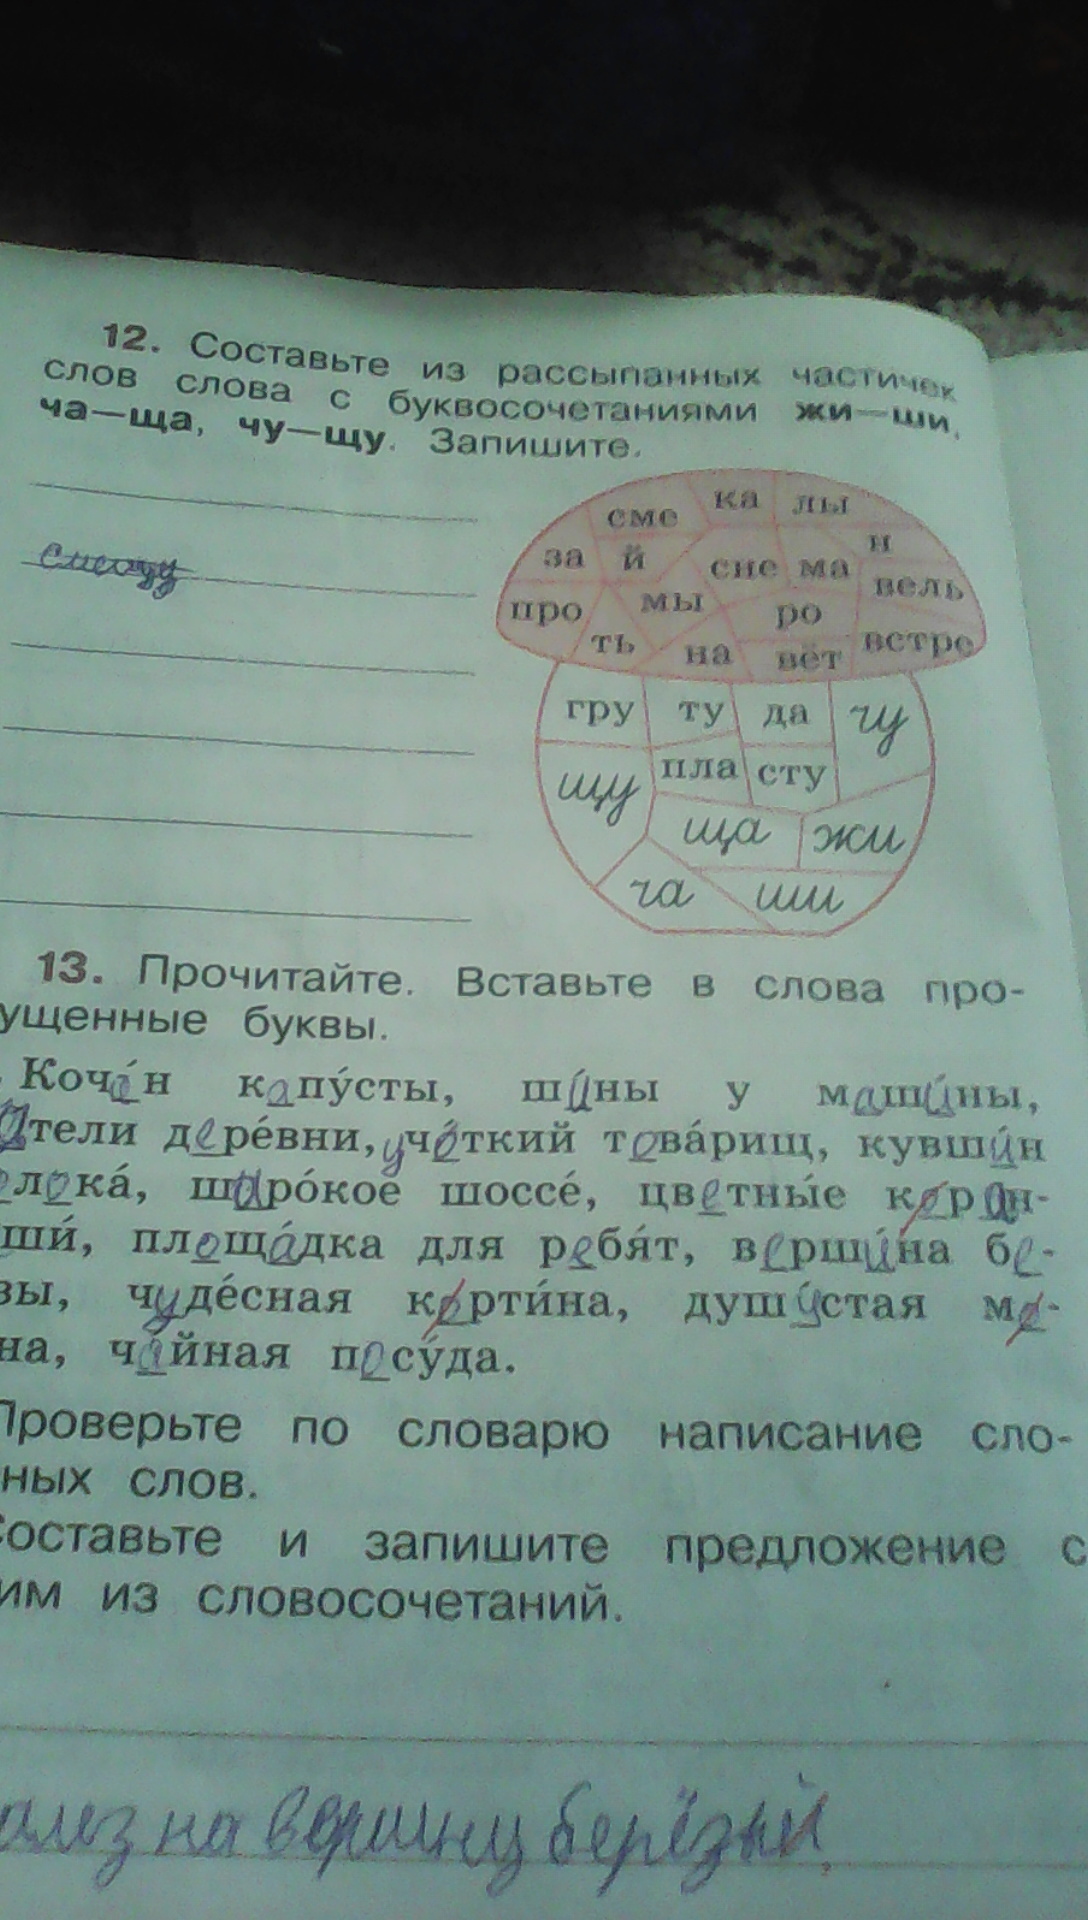 12. Составьте из рассыпанных частичек
слов слова с буквосочетаниями жи—ши,
ча—ща, чу—щу. Запишите.
сме ка лы
за й сне ма н
про мы ро вель
ть на вёт встре
гру ту да чу
щу пла сту
ща жи
ча ши
13. Прочитайте. Вставьте в слова про-
ущенные буквы.
Кочан капу́сты, ши́ны у маши́ны,
тели дере́вни, чёткий това́рищ, кувши́н
лока́, широ́кое шоссе́, цветны́е каран-
ши́, площа́дка для ребя́т, верши́на бе-
зы, чуде́сная карти́на, душистая ма-
на, ча́йная посу́да.
Проверьте по словарю написание сло-
ных слов.
Составьте и запишите предложение с
им из словосочетаний.
на вершину берёзы